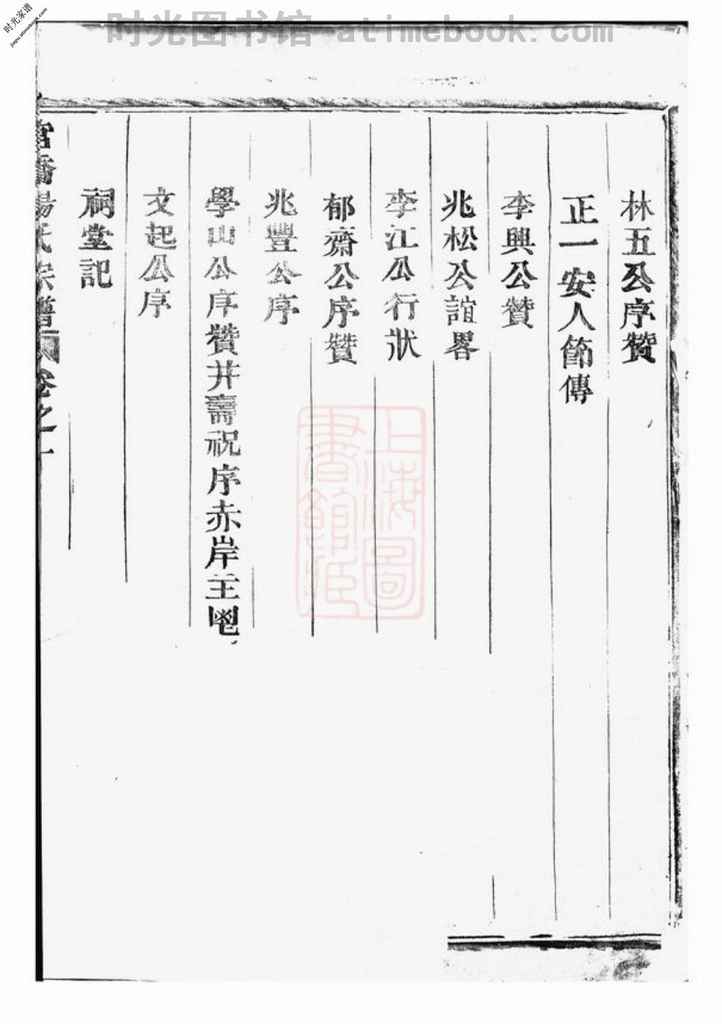 时光图书馆 - atimebook.com
时光家谱
林五公序贊
正一安人節傳
李興公贊
兆松公誼畧
李江公行狀
郁齋公序贊
兆豐公序
學山公序贊并壽祝序赤岸主鬯
文起公序
祠堂記
楊氏宗譜 卷之一
上海圖書館藏